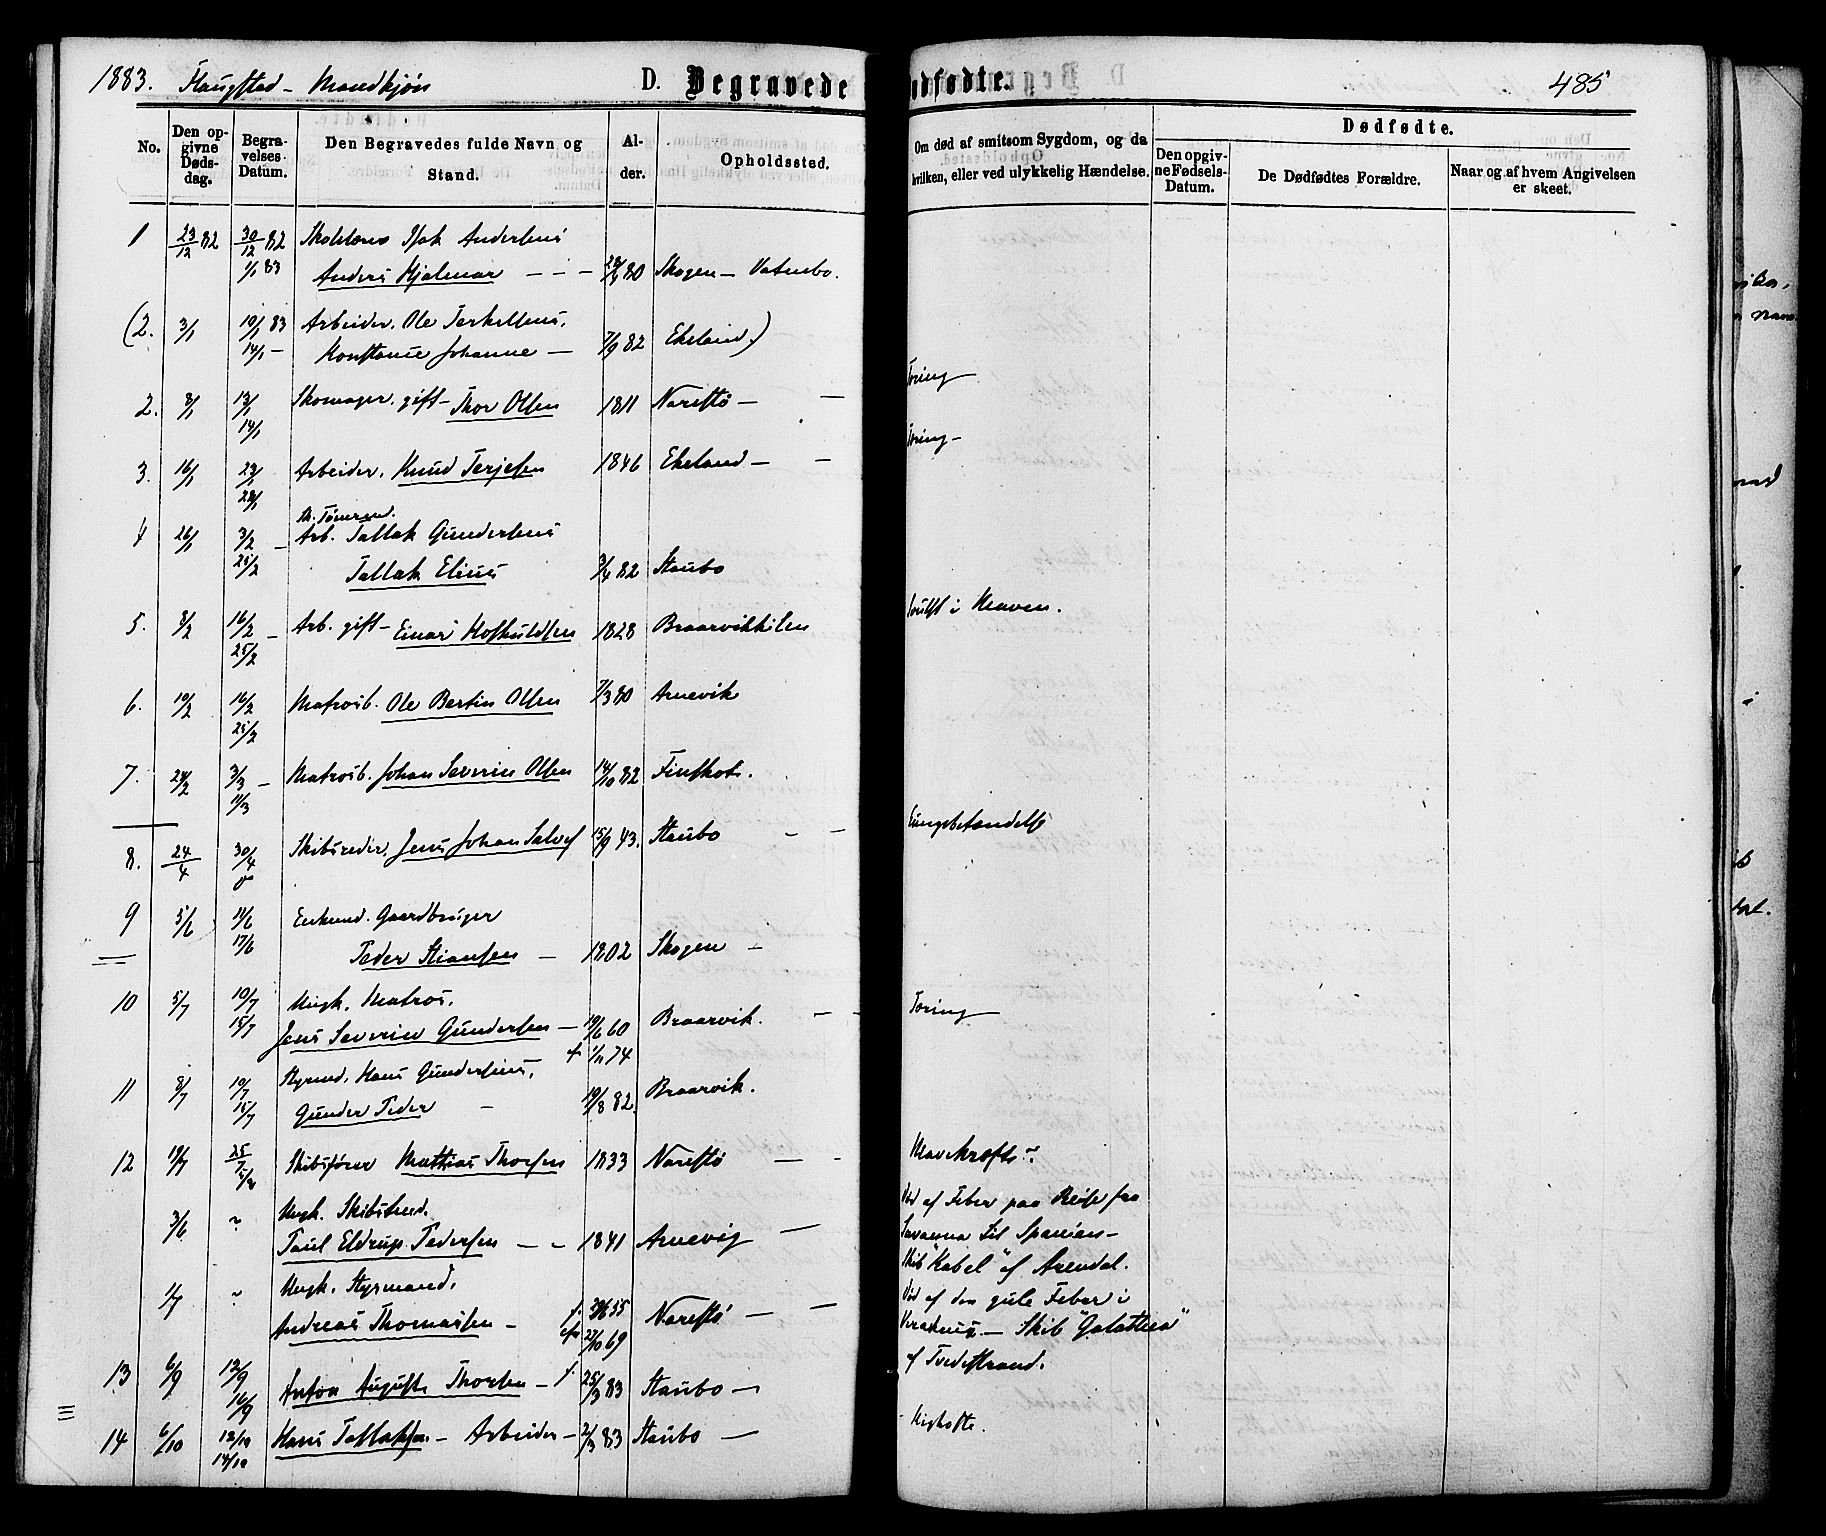 1883. Flangstad - Mandkjøn D. Begravede
No. Den opgivne Dødsdag. Begravelses-Datum. Den Begravedes fulde Navn og Stand. Alder. Opholdssted.
1 23/12 82 30/12 82 Skolelærer Isak Andersens
1/1 83 Anders Hjalmar - - - 80 Skogen - Vatnebo.
(2. 3/1 10/1 83 Arbeider. Ole Terkelsens,
14/1 - Konstance Johanne - 7/9 82 Ekeland)
2. 8/1 13/1 Skomager. gift - Thor Olsen 1811 Narestø - -
14/1
3. 16/1 23/1 Arbeider. Knud Terjesen 1846 Ekeland - -
28/1
4 26/1 3/2 - Arb. Tallak Gundersens
25/2 Tallak Elius 3/4 82 Staubo
5. 8/2 16/2 - Arb. gift - Einar 1828 Braarvikkilen
25/2
6. 10/2 16/2 Matrosb. Ole Bertin Olsen 7/3 80 Arnevik
25/2
7. 24/2 3/3 - Matrosb. Johan Severin Olsen 14/10 82
11/3
8. 24/4 30/4 Skibsreder. Jens Johan Salves 15/9 43. Staubo - -
9 5/6 11/6 Enkemd. Gaardbruger
17/6 Peder Stiansen - 1802 Skogen -
10 5/7 10/7 Ungk. Matros.
15/7 Jens Severin Gundersen - 19/6 60 Braarvik. - -
1/11 74
11 8/7 10/7 Styrmd. Hans Gundersens,
15/7 Gunder Peder - 19/8 82. Braarvik.
12 19/7 25/7 Skibsfører Mathias Thorsen 1833 Narestø - -
3/6 " Ungk. Skibstmd.
Paul Eldrup Pedersen - - 1841 Arnevig -
1/7 " Ungk. Styrmand.
Andreas Thomassen - 55 Narestø - -
27/10 69
13 6/9 12/9 Anton August Thorsen - f. 25/3 83 Staubo -
16/9
14 6/10 12/10 Hans Tallaksen - Arbeider - 2/3 83 Staubo -
14/10
dfødte. 485
Om død af smitsom Sygdom, og da hvilken, eller ved ulykkelig Hændelse.
Dødfødte.
Den opgivne Fødsels-Datum. De Dødfødtes Forældre. Naar og af hvem Angivelsen er skeet.
Tæring
Tæring -
Svulst i Maven.
Lungebetændelse
Tæring
Mavekræft
Død af Feber paa Reise fra
Savanna til Spanien -
Skib "Kabel" af Arendal.
Død af den gule Feber i
Verakruz - Skib "Galathea"
af Tvedestrand.